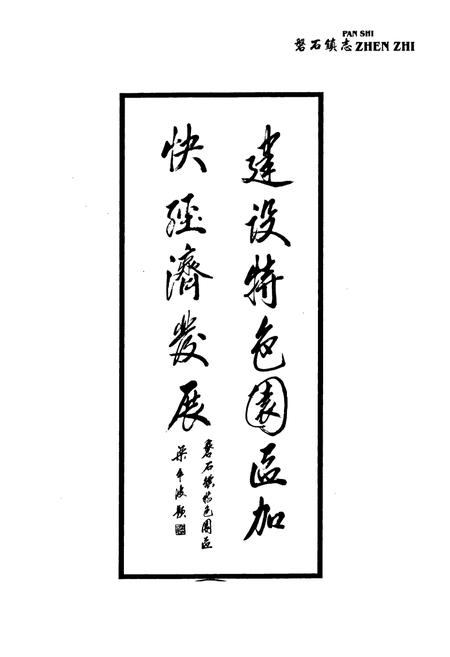 PAN SHI
磐石镇志 ZHEN ZHI
建设特色園區加
快經濟發展
磐石镇特色園區
梁平波题